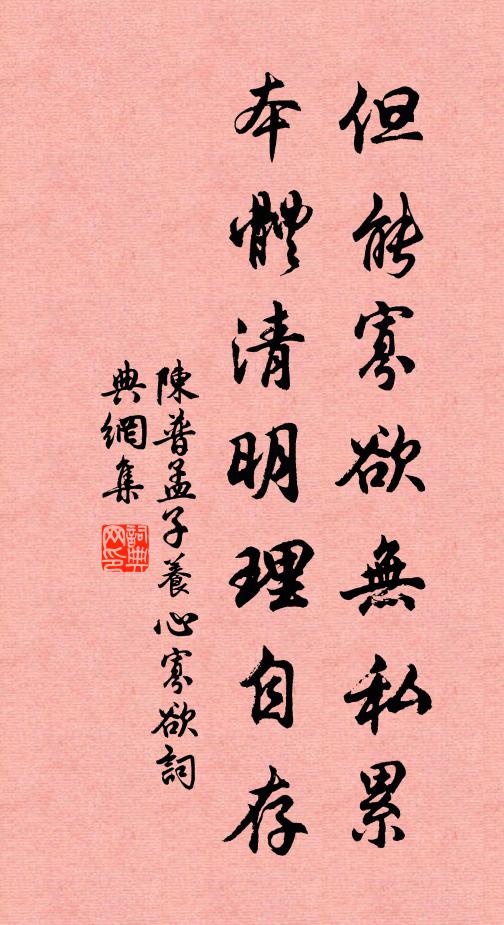 但能寡欲無私累
本體清明理自存
陳普孟子養心寡欲詞
典網集
詞典
网印